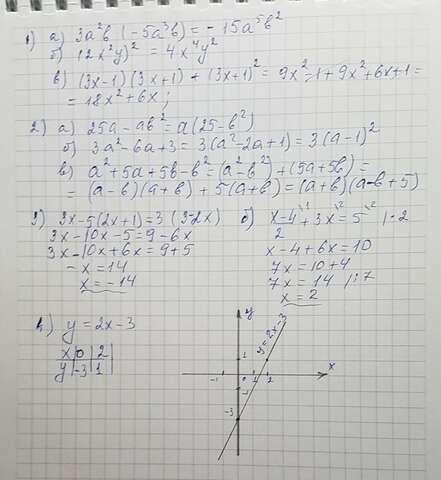 1) а) 3a²b (-5a³b) = -15a⁵b²
б) (2x²y)² = 4x⁴y²
в) (3x-1)(3x+1) + (3x+1)² = 9x²-1+9x²+6x+1=
= 18x²+6x;
2) а) 25a-ab² = a(25-b²)
б) 3a²-6a+3 = 3(a²-2a+1) = 3(a-1)²
в) a²+5a+5b-b² = (a²-b²)+(5a+5b) =
= (a-b)(a+b) + 5(a+b) = (a+b)(a-b+5)
3) 3x-5(2x+1)=3(3-2x)
3x-10x-5=9-6x
3x-10x+6x=9+5
-x=14
x=-14
б) x-4/2 \¹ + 3x \² = 5 \² | · 2
x-4+6x=10
7x=10+4
7x=14 |:7
x=2
4) y=2x-3
x | 0 | 2
y | -3 | 1
y
y=2x-3
x
1
-1 0 1 2
-1
-3